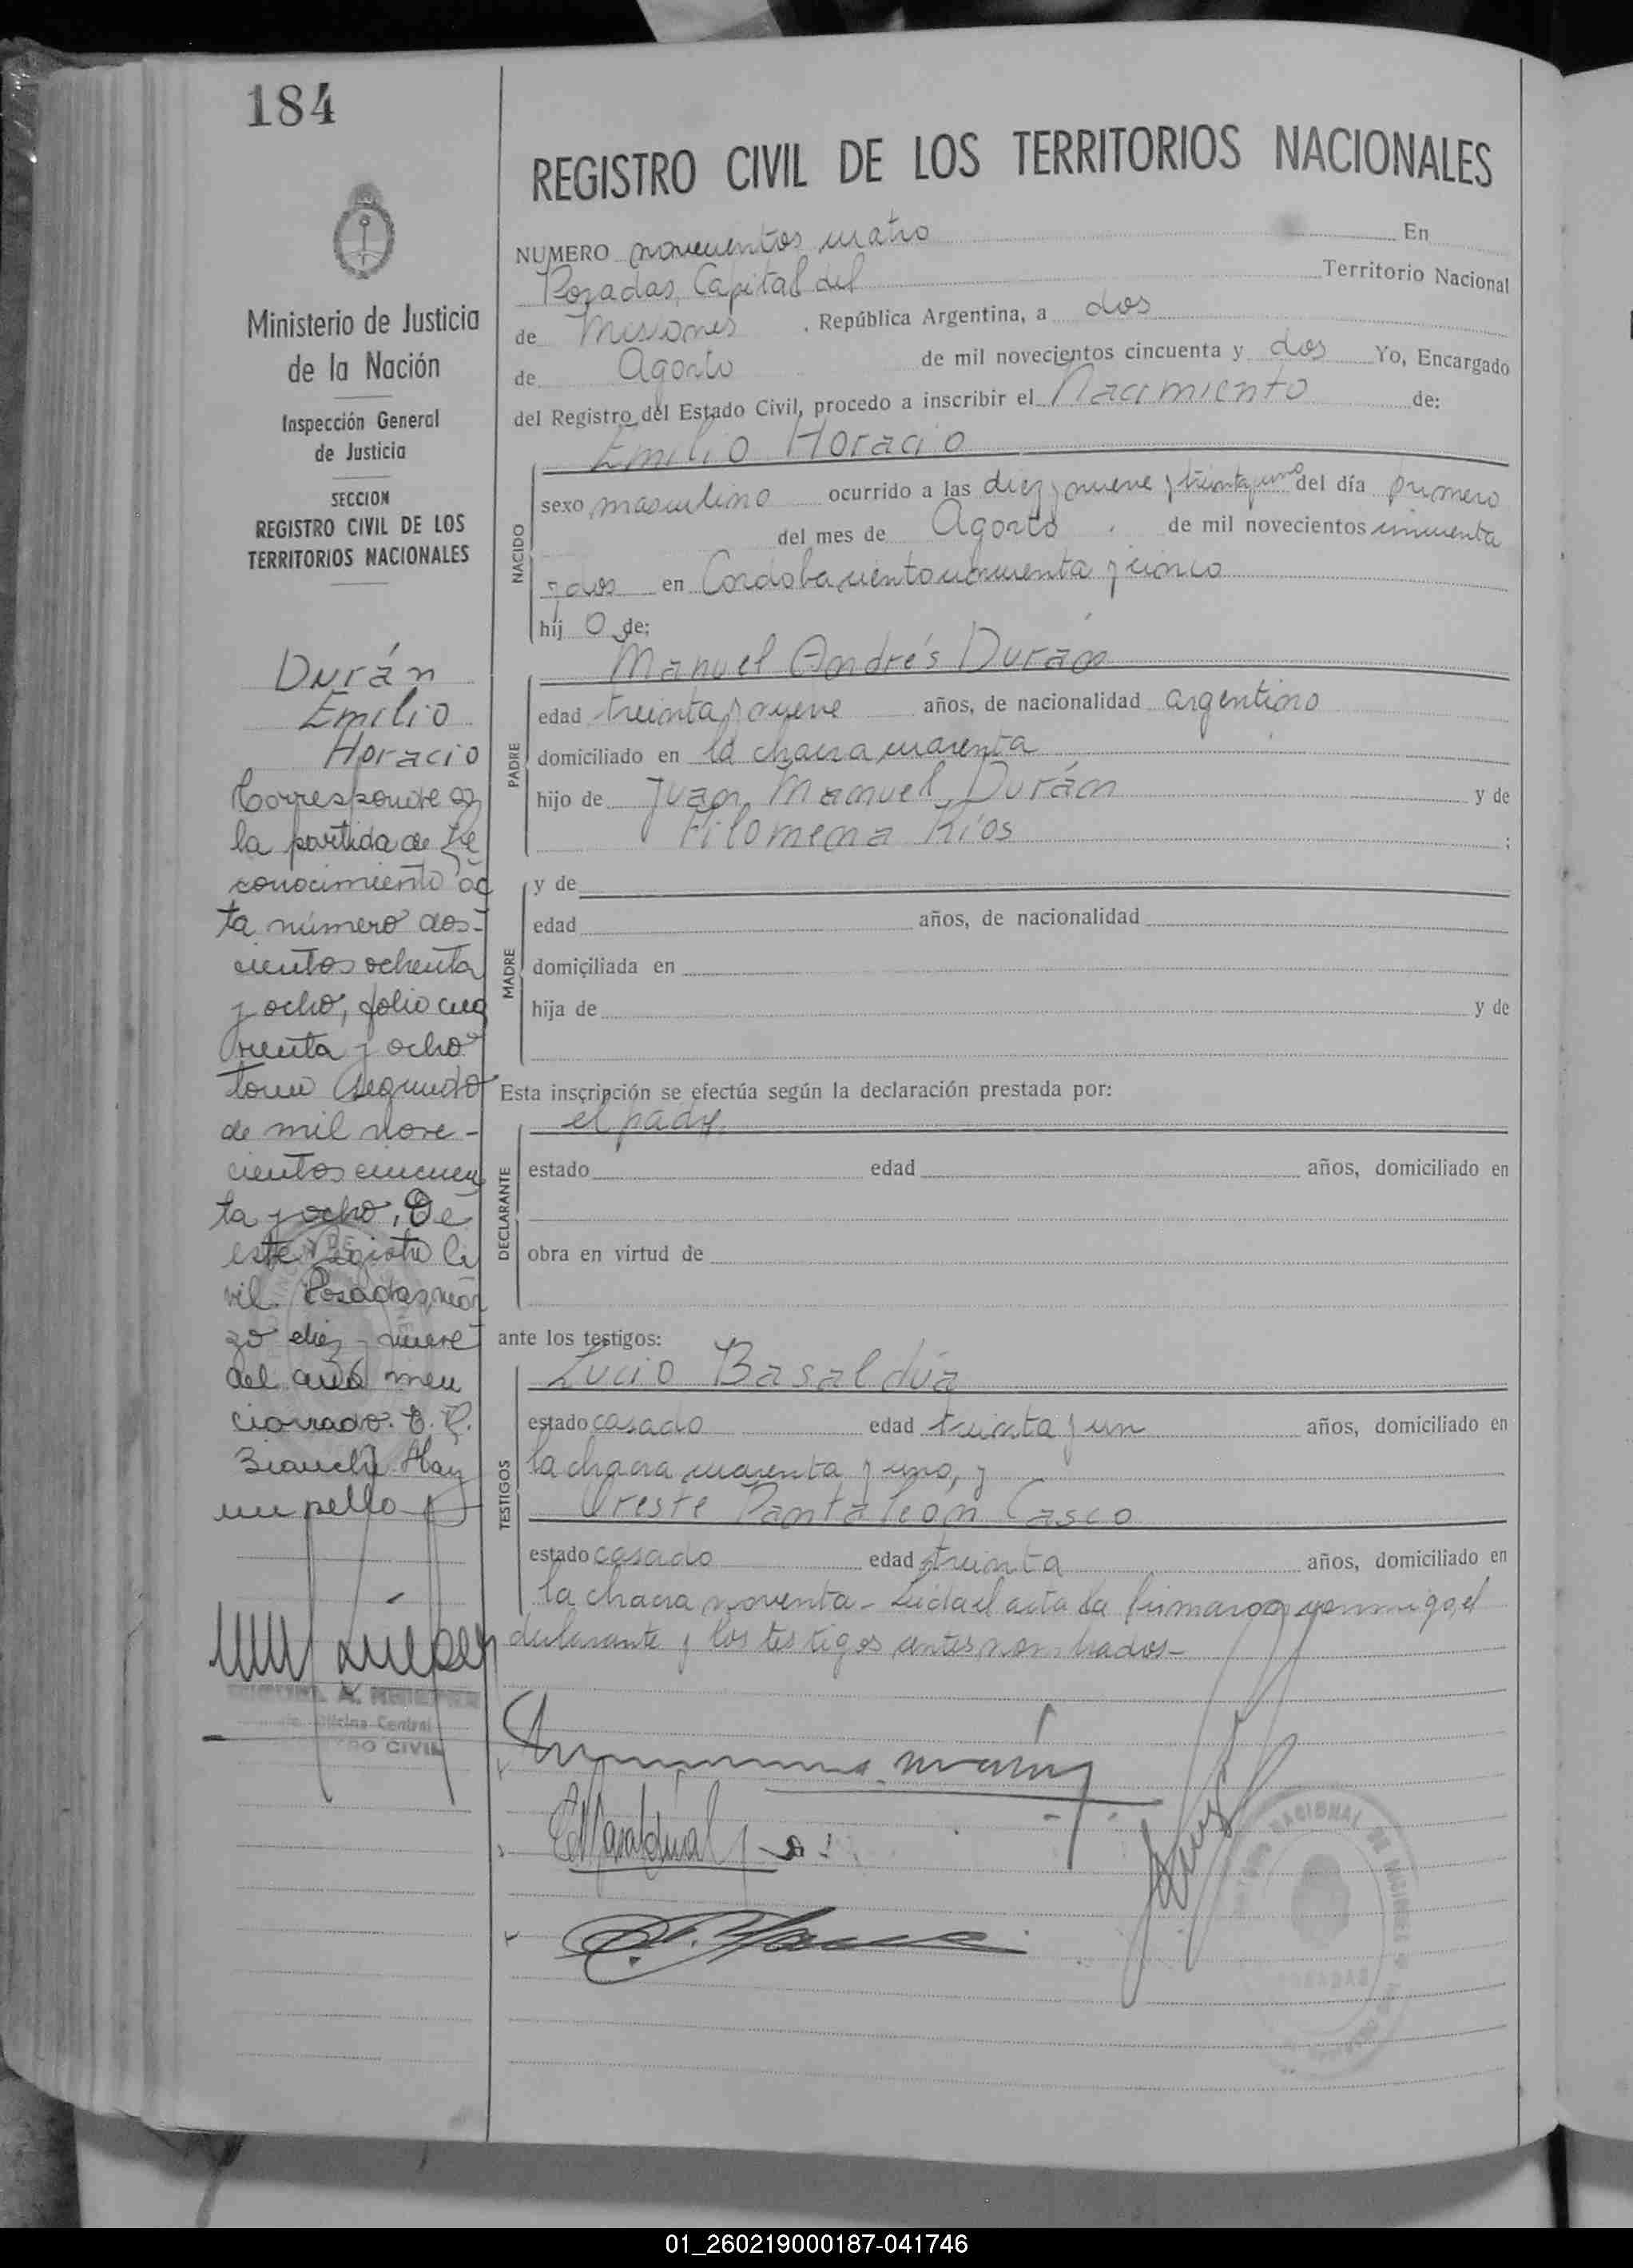 184
REGISTRO CIVIL DE LOS TERRITORIOS NACIONALES
Ministerio de Justicia
de la Nación
Inspección General
de Justicia
SECCION
REGISTRO CIVIL DE LOS
TERRITORIOS NACIONALES
Durán
Emilio
Horacio
Corresponde a
la partida de Re
conocimiento ac
ta número dos-
cientos ochenta
y ocho, folio cua
renta y ocho
tomo segundo
de mil nove-
cientos cincuen
ta y ocho, De
este Registro Ci
vil. Posadas, mar
zo diez y nueve
del año men
cionado.
Bianchi. Hay
un sello
Oficina Central
CIVIL
NUMERO novecientos cuatro En
Posadas, Capital del Territorio Nacional
de Misiones , República Argentina, a dos
de Agosto de mil novecientos cincuenta y dos Yo, Encargado
del Registro del Estado Civil, procedo a inscribir el Nacimiento de:
Emilio Horacio
NACIDO
sexo masculino ocurrido a las diez y nueve y treinta y uno del día primero
del mes de Agosto de mil novecientos cincuenta
y dos en Cordoba ciento cincuenta y cinco
hij o de:
Manuel Andrés Durán
PADRE
edad treinta y nueve años, de nacionalidad argentino
domiciliado en la chacra cuarenta
hijo de Juan Manuel Durán y de
Filomena Ríos ;
MADRE
y de
edad años, de nacionalidad
domiciliada en
hija de y de
Esta inscripción se efectúa según la declaración prestada por:
el padre
DECLARANTE
estado edad años, domiciliado en
obra en virtud de
ante los testigos:
Lucio Basaldúa
TESTIGOS
estado casado edad treinta y un años, domiciliado en
la chacra cuarenta y uno, y
Oreste Pantaleón Casco
estado casado edad treinta años, domiciliado en
la chacra noventa - Leída el acta la firmaron conmigo, el
declarante y los testigos antes nombrados-
NACIONAL DE MISIONES
POSADAS
01_260219000187-041746